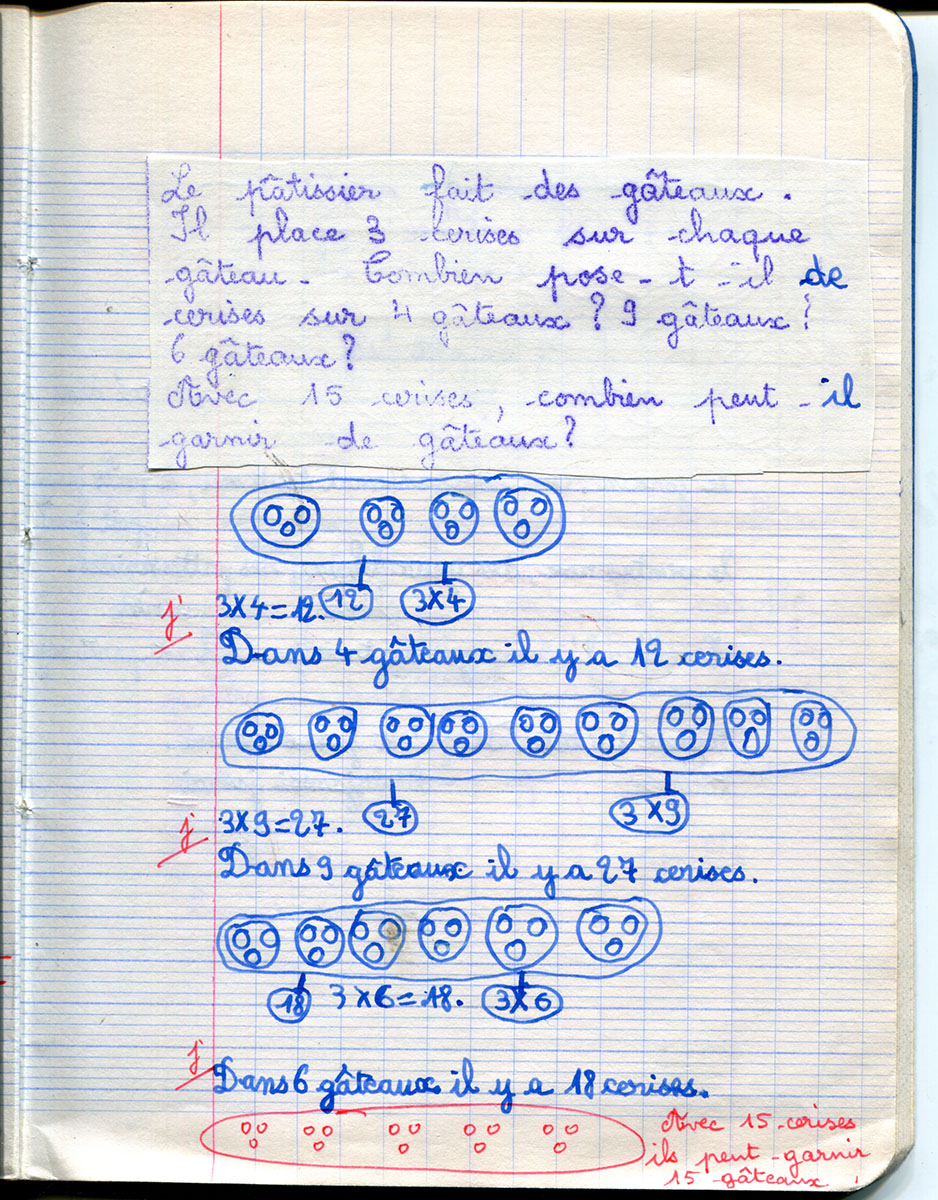 Le pâtissier fait des gâteaux.
Il place 3 cerises sur chaque
gâteau. Combien pose-t-il de
cerises sur 4 gâteaux? 9 gâteaux?
6 gâteaux?
Avec 15 cerises, combien peut-il
garnir de gâteaux?
3X4=12. 12 3X4
j'
Dans 4 gâteaux il y a 12 cerises.
j' 3X9=27. 27 3X9
Dans 9 gâteaux il y a 27 cerises.
18 3X6=18. 3X6
j'
Dans 6 gâteaux il y a 18 cerises.
Avec 15 cerises
ils peut garnir
15 gâteaux